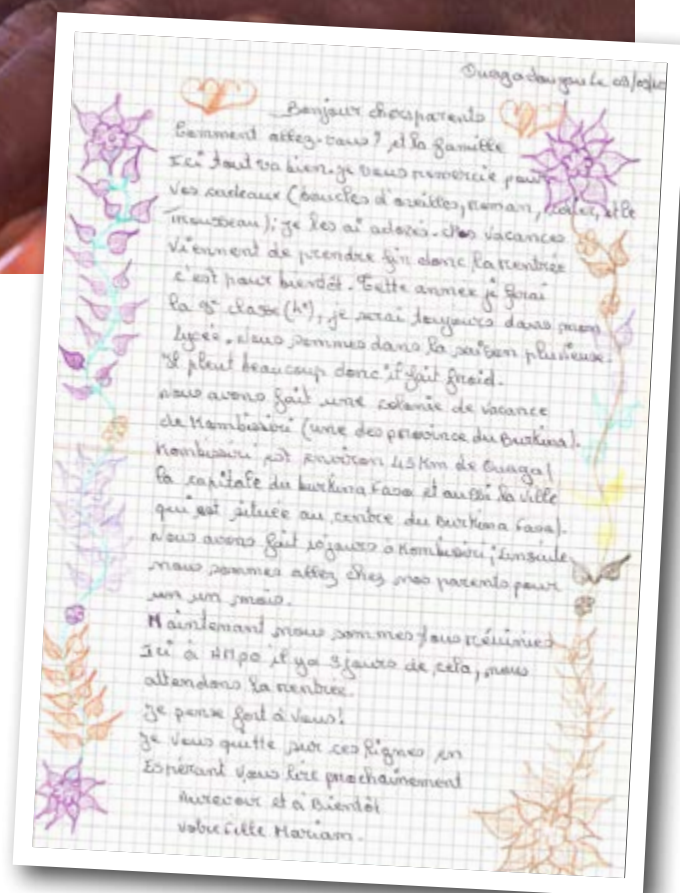 Ouagadougou Le 03/09/
Bonjour chers parents
Comment allez-vous? et la famille
Ici tout va bien. je vous remercie pour
Vos cadeaux (boucles d'oreilles, roman, collier, et le
trousseau); je les ai adorés. Les vacances
Viennent de prendre fin donc la rentrée
c'est pour bientôt. Cette année je ferai
la classe (4e), je serai toujours dans mon
lycée. Nous sommes dans la saison pluvieuse.
Il pleut beaucoup donc il fait froid.
Nous avons fait une colonie de vacance
de Kombissiri (une des province du Burkina).
Kombissiri est environ 45 Km de Ouaga (
la capitale du burkina Faso et aussi la ville
qui est située au centre du Burkina Faso).
Nous avons fait jours à Kombissiri; Ensuite
nous sommes allez chez nos parents pour
un un mois.
Maintenant nous sommes tous réunies
Ici à AMPO il ya 3 jours de cela, nous
attendons la rentrée.
Je pense fort à Vous!
Je Vous quitte sur ces lignes en
Espérant vous lire prochainement
Aurevoir et à Bientôt
votre fille Mariam.